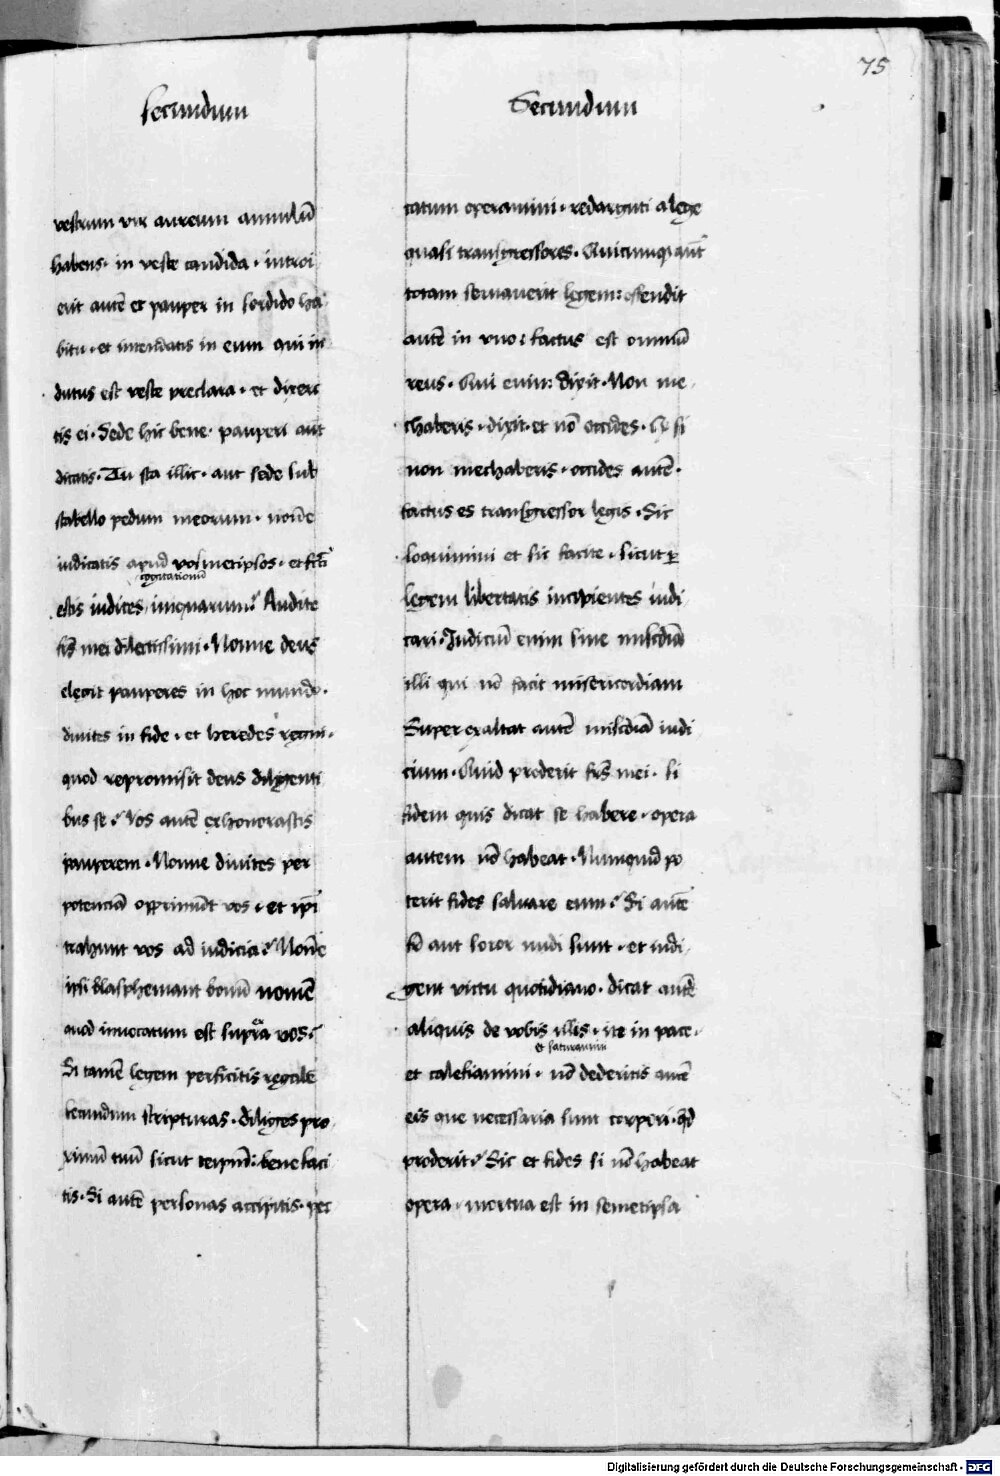 75
secundum
Secundum
vestrum vir aureum annulū
habens · in veste candida · introi
erit autē et pauper in sordido ha
bitu · et intendatis in eum qui in
dutus est veste preclara · et dixeri
tis ei · Sede hic bene · pauperi aūt
dicatis · Tu sta illic · aut sede sub
scabello pedum meorum · nonne
iudicatis apud vosmetipsos · et fcī
cogitationū
estis iudices iniquarum? Audite
frs̄ mei dilectissimi · Nonne deus
elegit pauperes in hoc mundo ·
divites in fide · et heredes regni ·
quod repromisit deus diligenti
bus se? Vos autē exhonorastis
pauperem · Nonne divites per
potenciā opprimūt vos · et ipī
trahunt vos ad iudicia? Nonē
ipsi blasphemant bonū nomē
quod invocatum est supra vos?
Si tamē legem perficitis regalē
secundum scripturas · diliges pro
ximū tuū sicut teipsū: bene faci
tis · Si autē personas accipitis · pec
catum operamini · redarguti a lege
quasi transgressores · Quicumqꝫ aūt
totam servaverit legem: offendit
autē in vno: factus est omniū
reus · Qui enim dixit · Non me
chaberis · dixit et nō occides · Qꝫ si
non mechaberis · occides autē ·
factus es transgressor legis · Sic
loquimini et sic facite · sicut ꝑ
legem libertatis incipientes iudi
cari · Judiciū enim sine miscdīa
illi qui nō facit misericordiam
Super exaltat autē miscdīa iudi
cium · Quid proderit frs̄ mei · si
fidem quis dicat se habere · opera
autem nō habeat · Numquid po
terit fides salvare eum? Si autē
fr̄ aut soror nudi sunt · et indi
gent victu quotidiano · dicat autē
aliquis de vobis illis · ite in pace ·
et saturamini
et calefiamini · nō dederitis autē
eis que necessaria sunt corpori · qd̄
proderit? Sic et fides si nō habeat
opera · mortua est in semetipsa
Digitalisierung gefördert durch die Deutsche Forschungsgemeinschaft · DFG